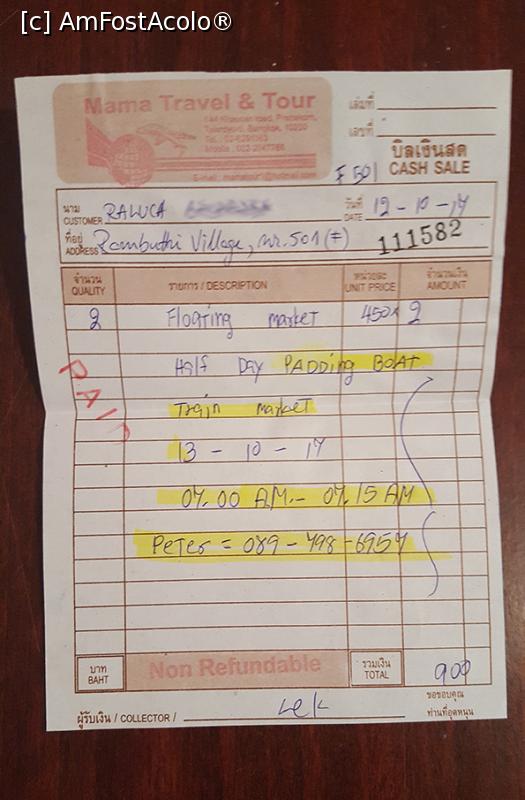 [c] AmFostAcolo®
Mama Travel & Tour
Talardyod, Bangkok, 10200
เล่มที่
เลขที่
บิลเงินสด
CASH SALE
F 501
นาม
CUSTOMER RALUCA
วันที่
DATE 12 - 10 - 17
ที่อยู่
ADDRESS Rambuthi Village, nr. 501 (F)
111582
จำนวน รายการ / DESCRIPTION หน่วยละ จำนวนเงิน
QUALITY UNIT PRICE AMOUNT
2 Floating market 450x2
Half Day PADDing BOAT
PAID
Train market
13 - 10 - 17
07.00 A.M.- 07.15 AM
Peter = 089-798-6957
บาท
BAHT
Non Refundable
รวมเงิน
TOTAL
900
ผู้รับเงิน / COLLECTOR / Lek
ขอขอบคุณ
ท่านที่อุดหนุน